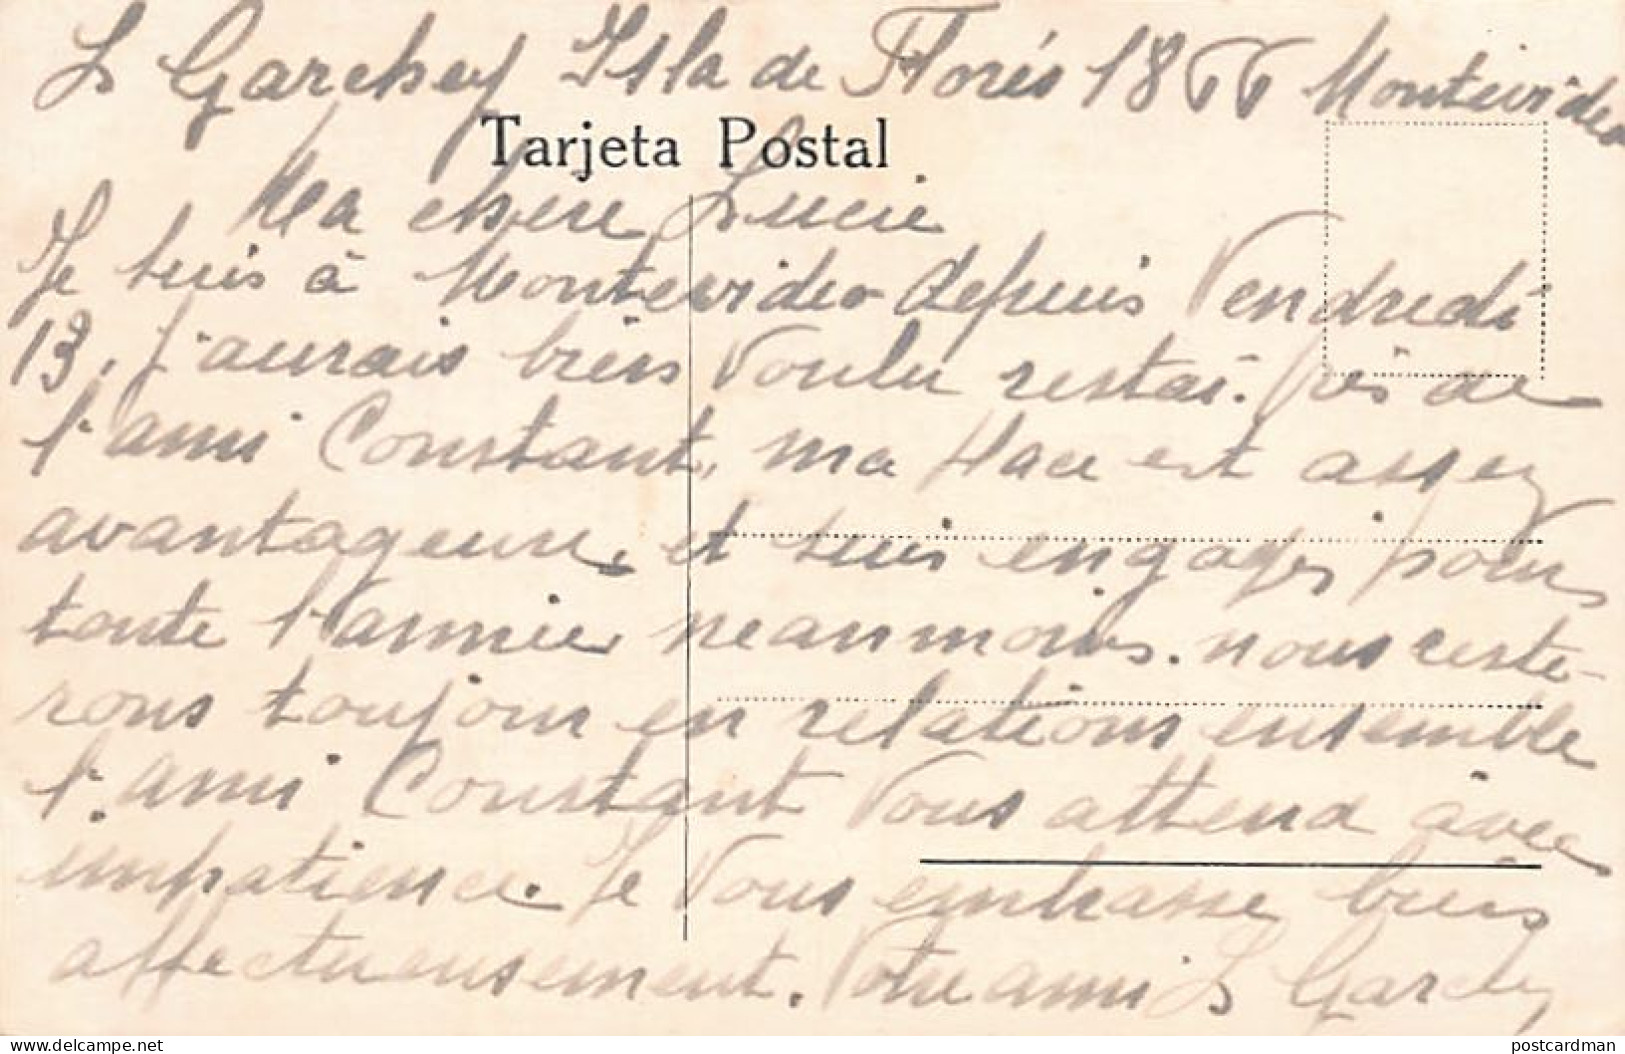 L Garchey Isla de Florés 1866 Montevideo
Tarjeta Postal
Ma chere Lucie
Je suis à Montevideo depuis Vendredi
13. j'aurais bien voulu restai. près de
l'ami Constant, ma place est assez
avantageuse, et suis engages pour
toute l'année, neanmoins. nous reste-
rons toujour en relations ensemble
l'ami Constant vous attend avec
impatience. Je vous embrasse bien
affectueusement. Votre ami L Garchey
www.delcampe.net
postcardman